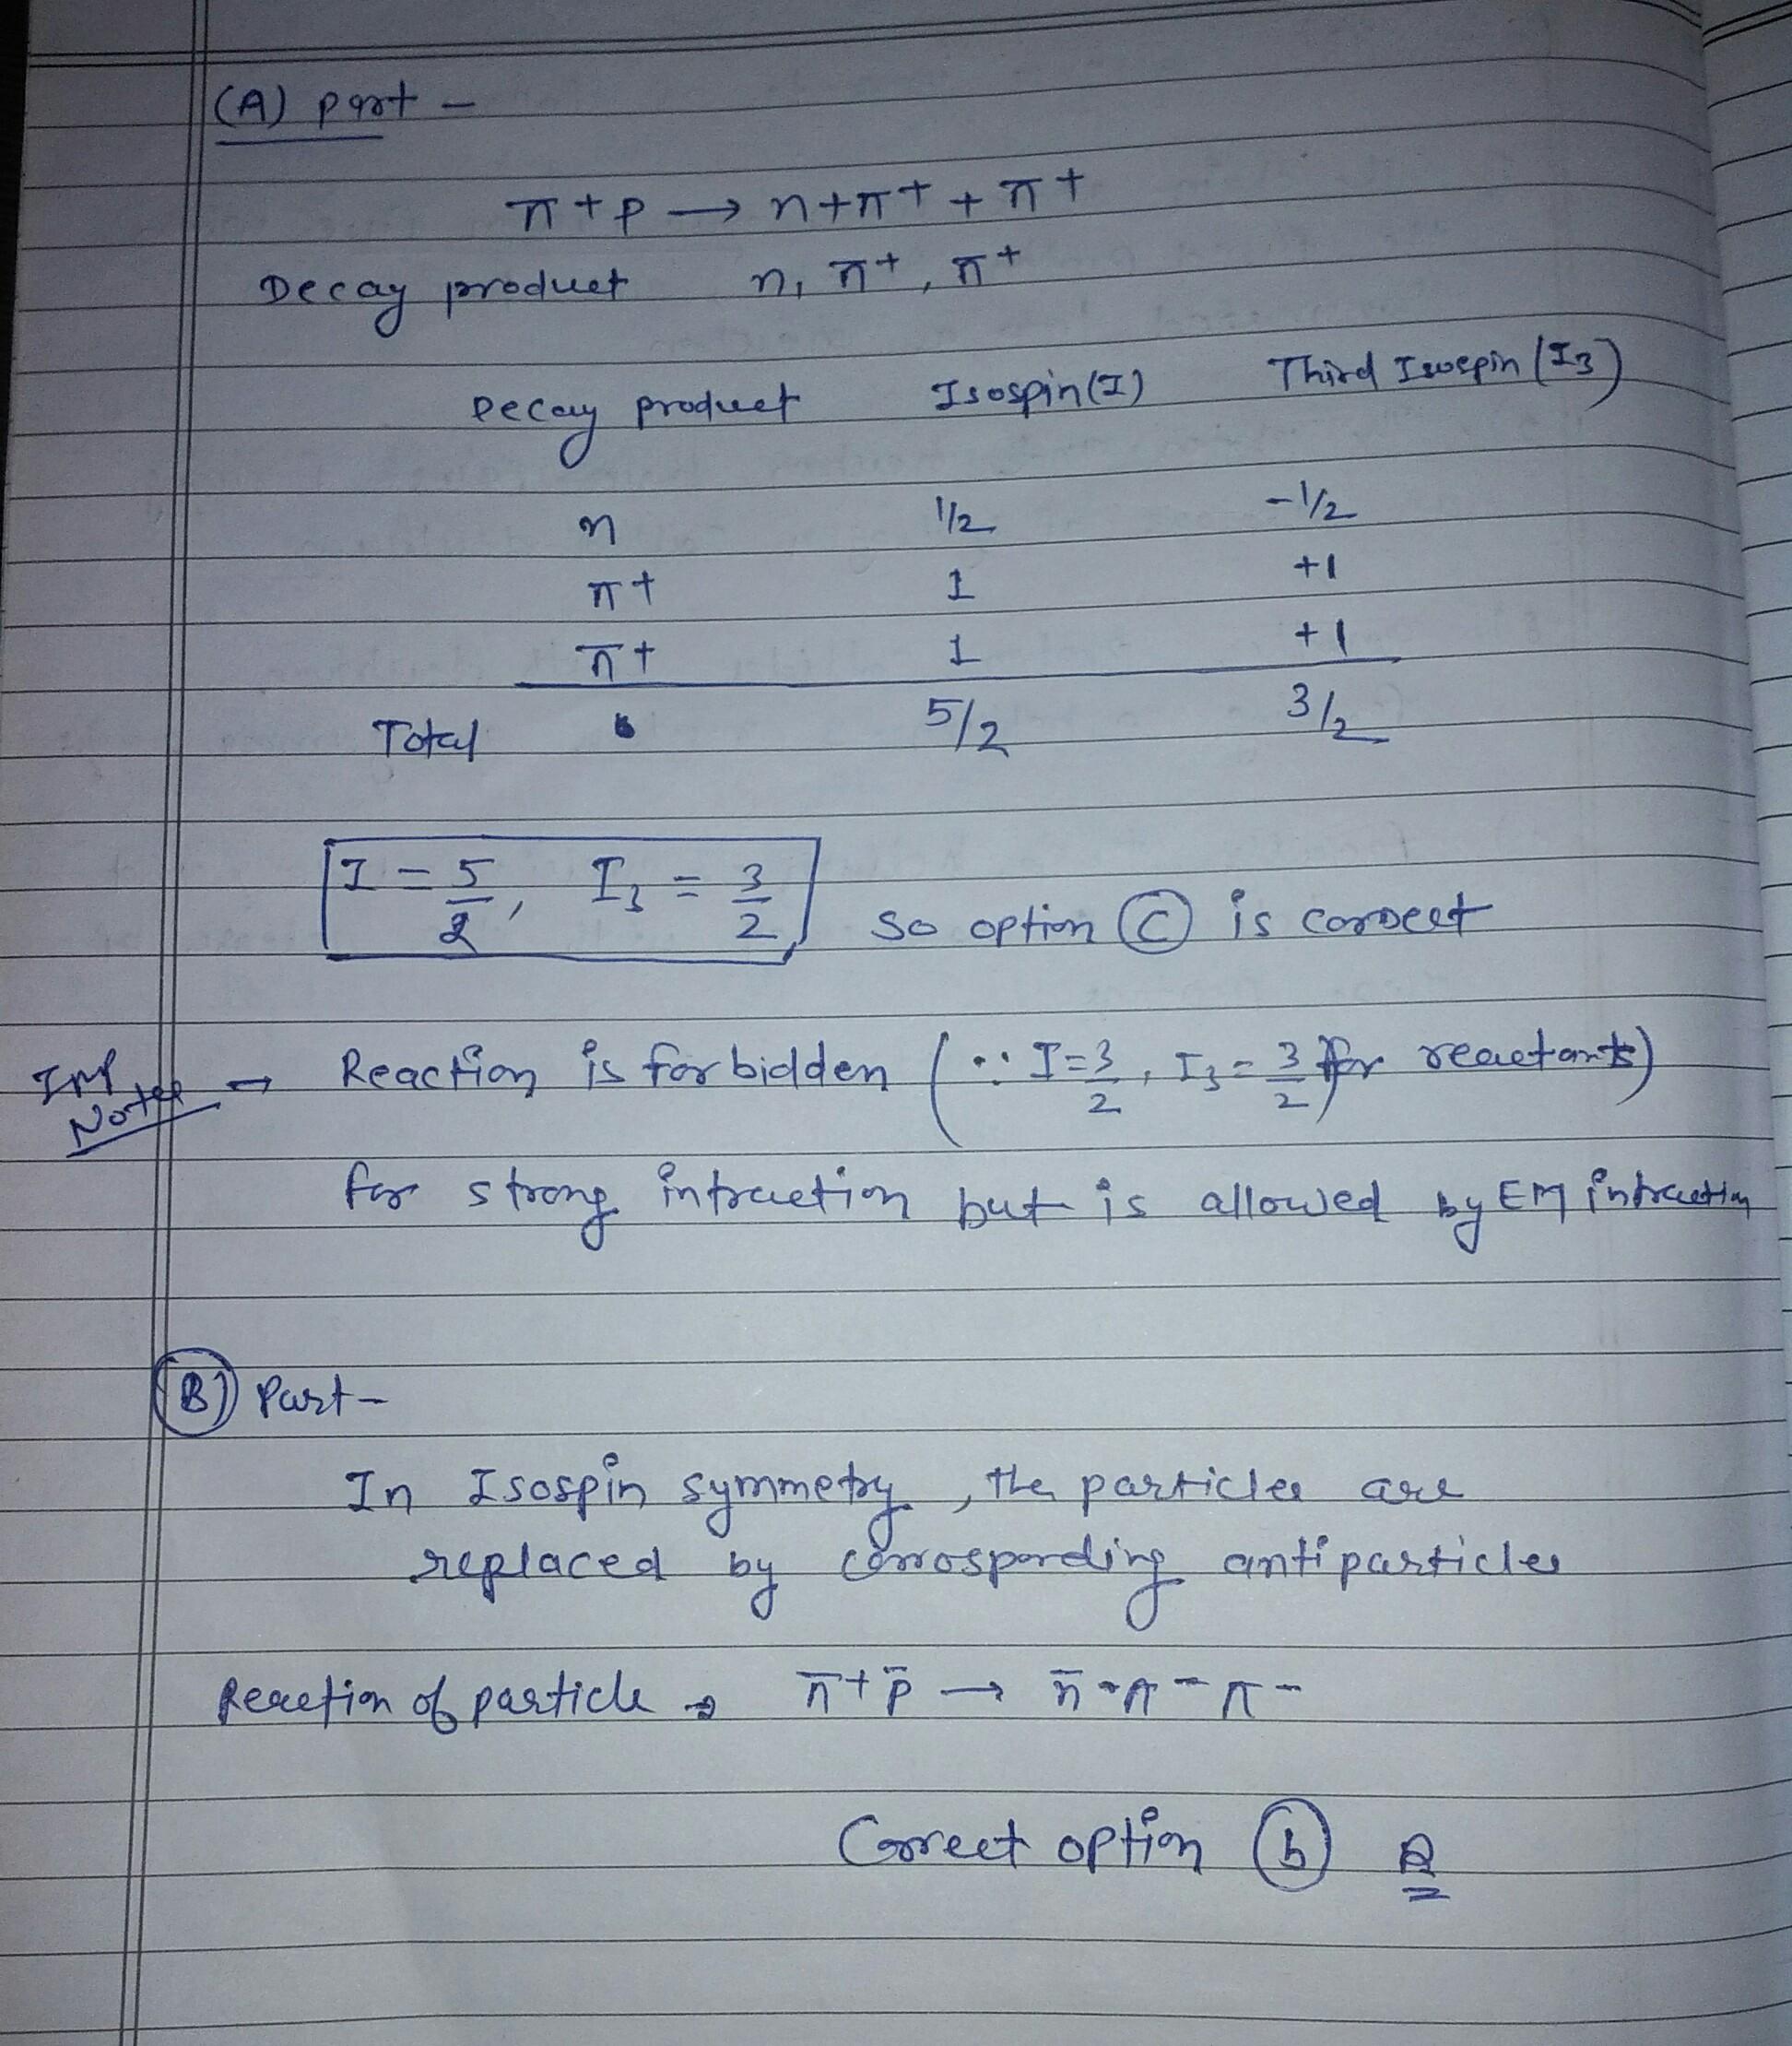 (A) part -
π+p → n+π+ + π+
Decay product n, π+, π+
Decay product Isospin(I) Third Isospin (I3)
n 1/2 -1/2
π+ 1 +1
π+ 1 +1
Total 5/2 3/2
I = 5/2, I3 = 3/2 so option (C) is correct
IMP Notes → Reaction is forbidden (∵ I=3/2, I3=3/2 for reactants)
for strong intraction but is allowed by EM intraction
(B) Part-
In Isospin symmetry, the particles are
replaced by corrosponding antiparticles
Reaction of particle → π+p̄ → n̄ π- π-
Correct option (b)